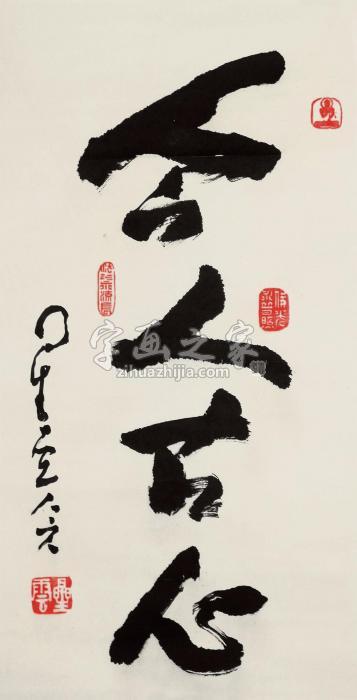 今人古心
星云
星雲
佛光
字画之家
zihuazhijia.com